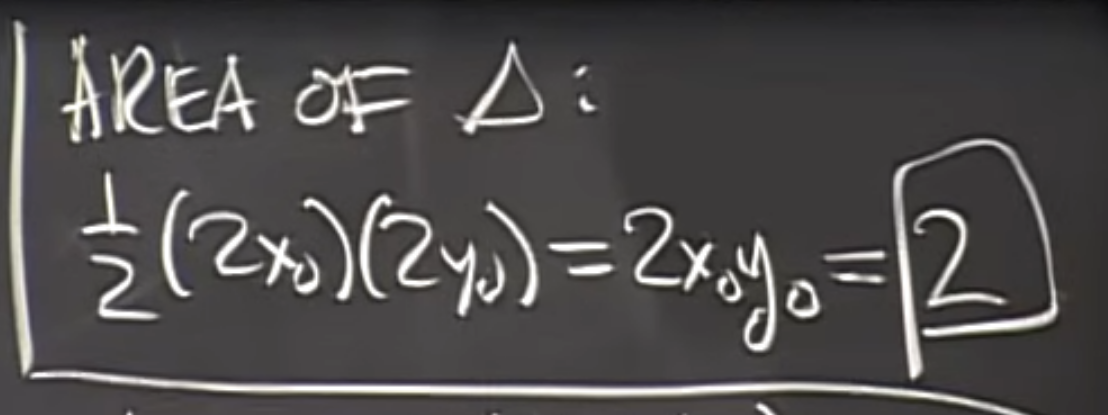 AREA OF Δ:
½(2x₀)(2y₀)=2x₀y₀=2